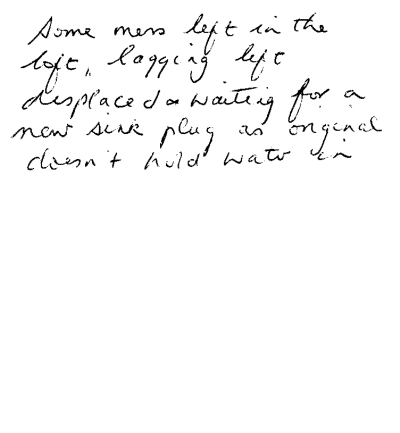 Some mess left in the
loft, lagging left
displaced & waiting for a
new sink plug as original
doesn't hold water in